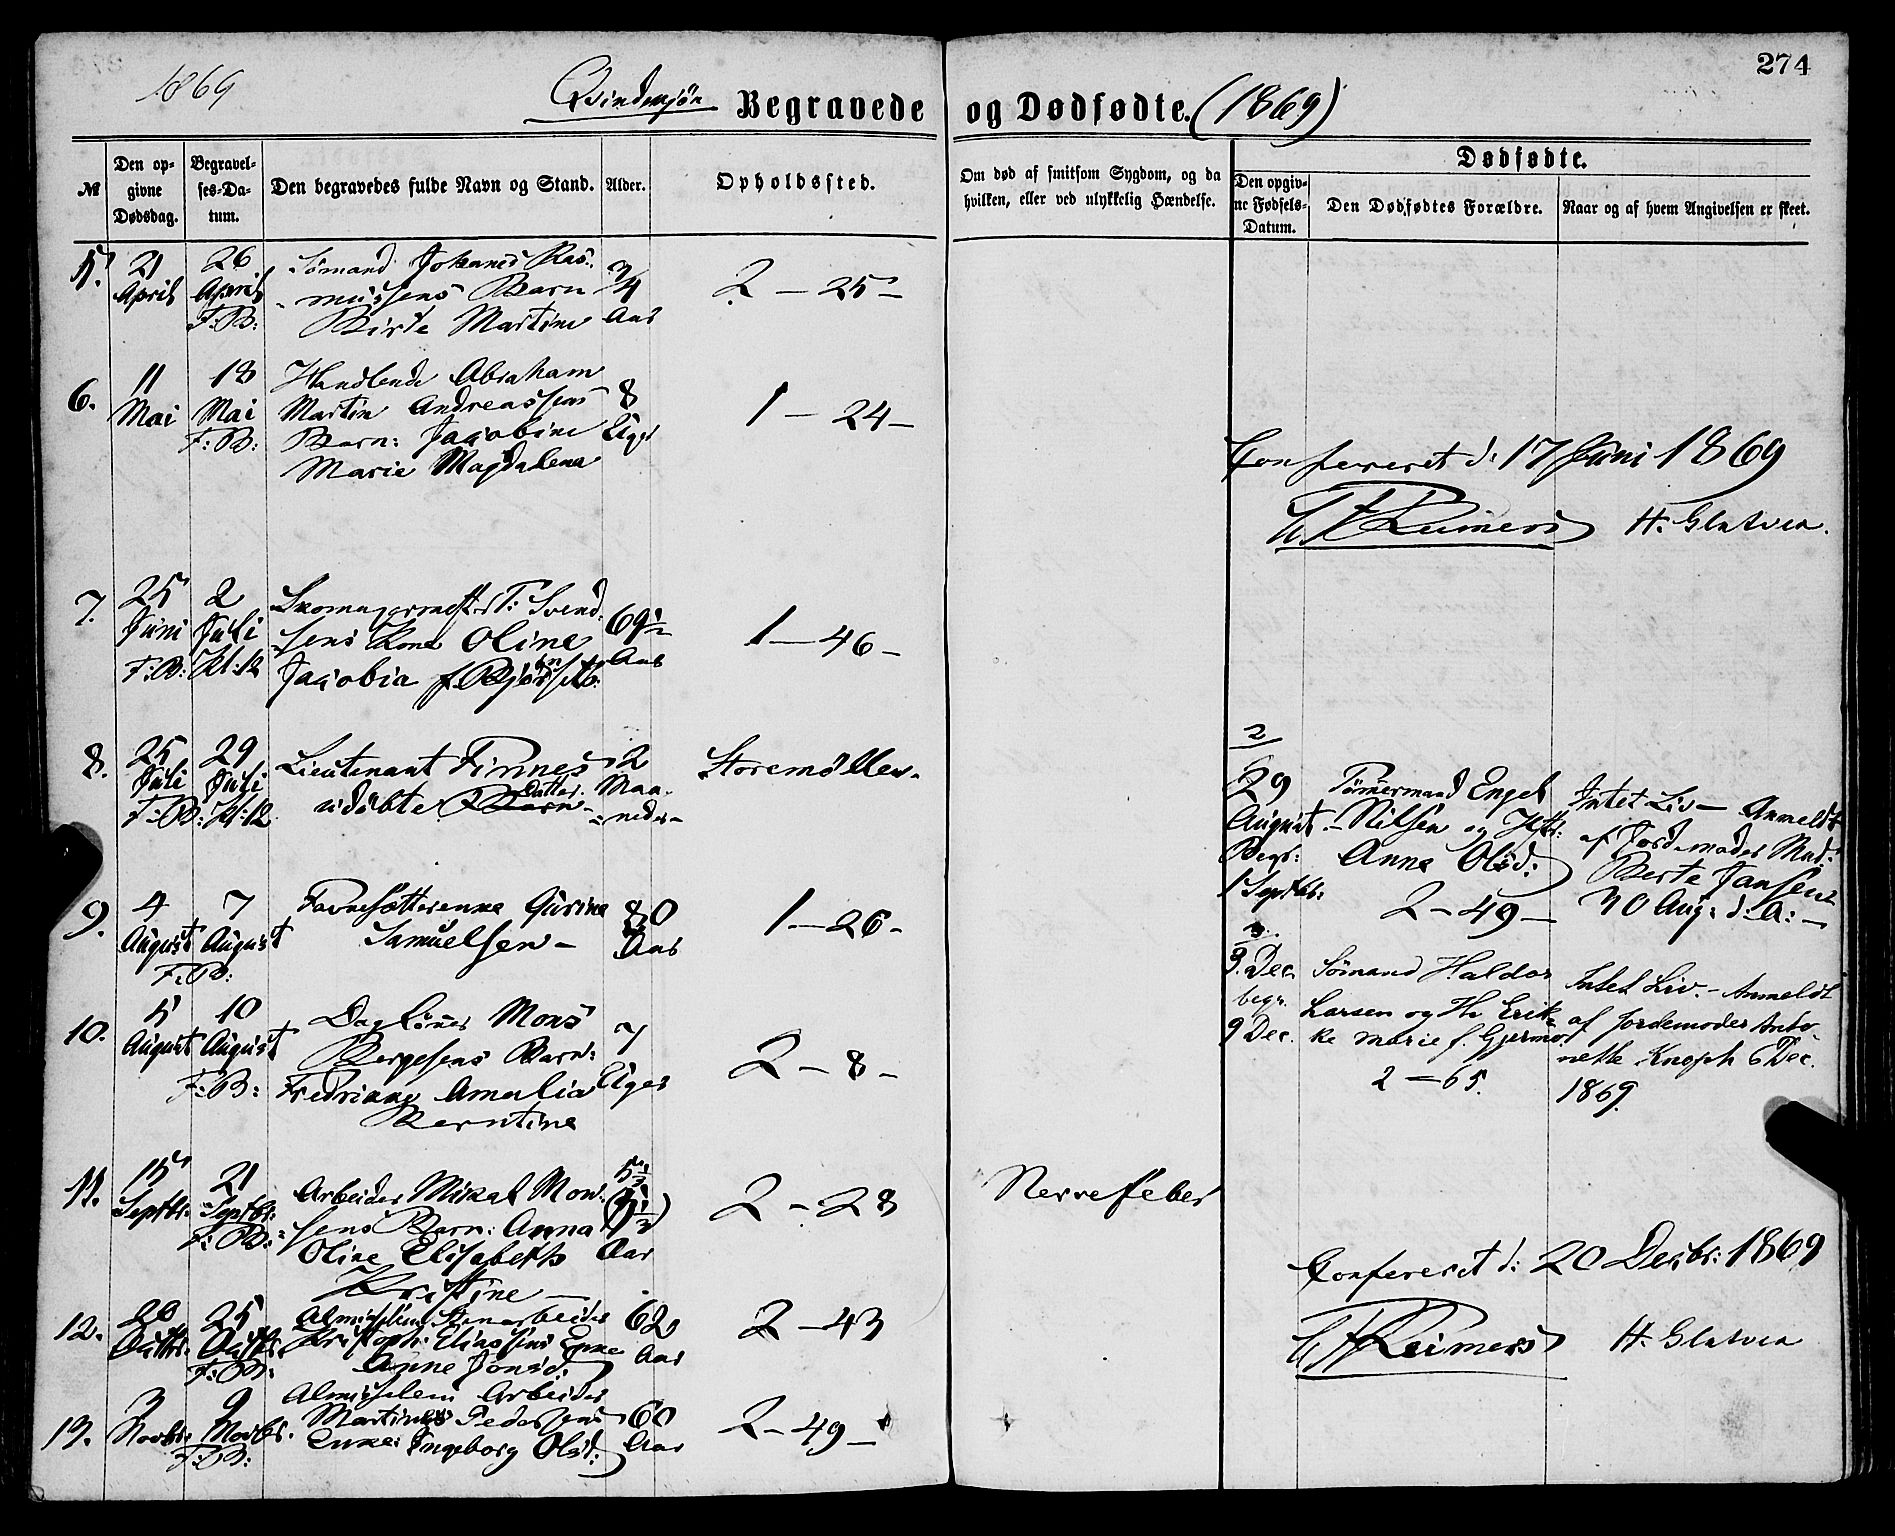 274
1869
Qvindekjön Begravede og Dødfødte. (1869)
№
Den opgivne Dødsdag.
Begravelses-Datum.
Den begravedes fulde Navn og Stand.
Alder.
Opholdssted.
Om død af smitsom Sygdom, og da hvilken, eller ved ulykkelig Hændelse.
Dødfødte.
Den opgivne Fødsels-Datum.
Den Dødfødtes Forældre.
Naar og af hvem Angivelsen er skeet.
5. 21 April 26 April F: B:
Sømand Johannes Ras-
mussens Barn
Birte Martine
3/4 Aar
2 - 25 -
6. 11 Mai 18 Mai F: B:
Handlende Abraham
Martin Andreassens
Barn: Jacobine
Marie Magdalena
8 Uger
1 - 24 -
Confereret d. 17 Juni 1869
Reimers H. Slatvea.
7. 25 Juni F: B: 2 Juli Kl: 12
Skomagermester T: Svend-
sens Kone Oline
Jacobia f. Bjørnseth:
69 1/2 Aar
1 - 46 -
8. 25 Juli F: B: 29 Juli Kl: 12
Lieutenant Finnes
udöbte Barn Datter
2 Maaneder -
Storemöllen.
9. 4 August 7 August F: B:
Favnesætterenke Gurine
Samuelsen -
80 Aar
1 - 26 -
10. 5 August 10 August F: B:
Daglönner Mons
Bergesens Barn:
Fredrianne Amalia
Berntine
7 Uger
2 - 8 -
11. 15 Septbr: 21 Septbr: F: B:
Arbeider Mikal Mon-
sens Barn: Anna
Oline Elisabeth
Kristine -
5 1/3 (5 1/3) Aar
2 - 28
Nervefeber
12. 20 Octbr. 25 Octbr. F: B:
Almisselem Stenarbeider
Kristoph: Eliassens Enke
Anne Jonsd:
62 Aar
2 - 43
13. 3 Novbr. 9 Novbr. F: B:
Almisselem Arbeider
Martines Pedersens
Enke: Ingeborg Olsd:
60 Aar
2 - 49 -
2
29 August
Begr:
1 Septbr:
Tømmermand Engel
Nilsen og Hstr:
Anne Olsd:
2 - 49 -
Intet Liv - Anmeldt
af Jordemoder Mad:
Berte Jansen
30 Aug: d: A: -
3.
3. Dec.
begr.
9 Dec.
Sømand Haldor
Larsen og H. Erik-
ke Marie f. Gjermo.
2 - 65.
Intet Liv. - Anmeldt
af Jordemoder Anto-
nette Knoph 6 Dec.
1869.
Confereret d: 20 Decbr: 1869
Reimers H. Slatvea